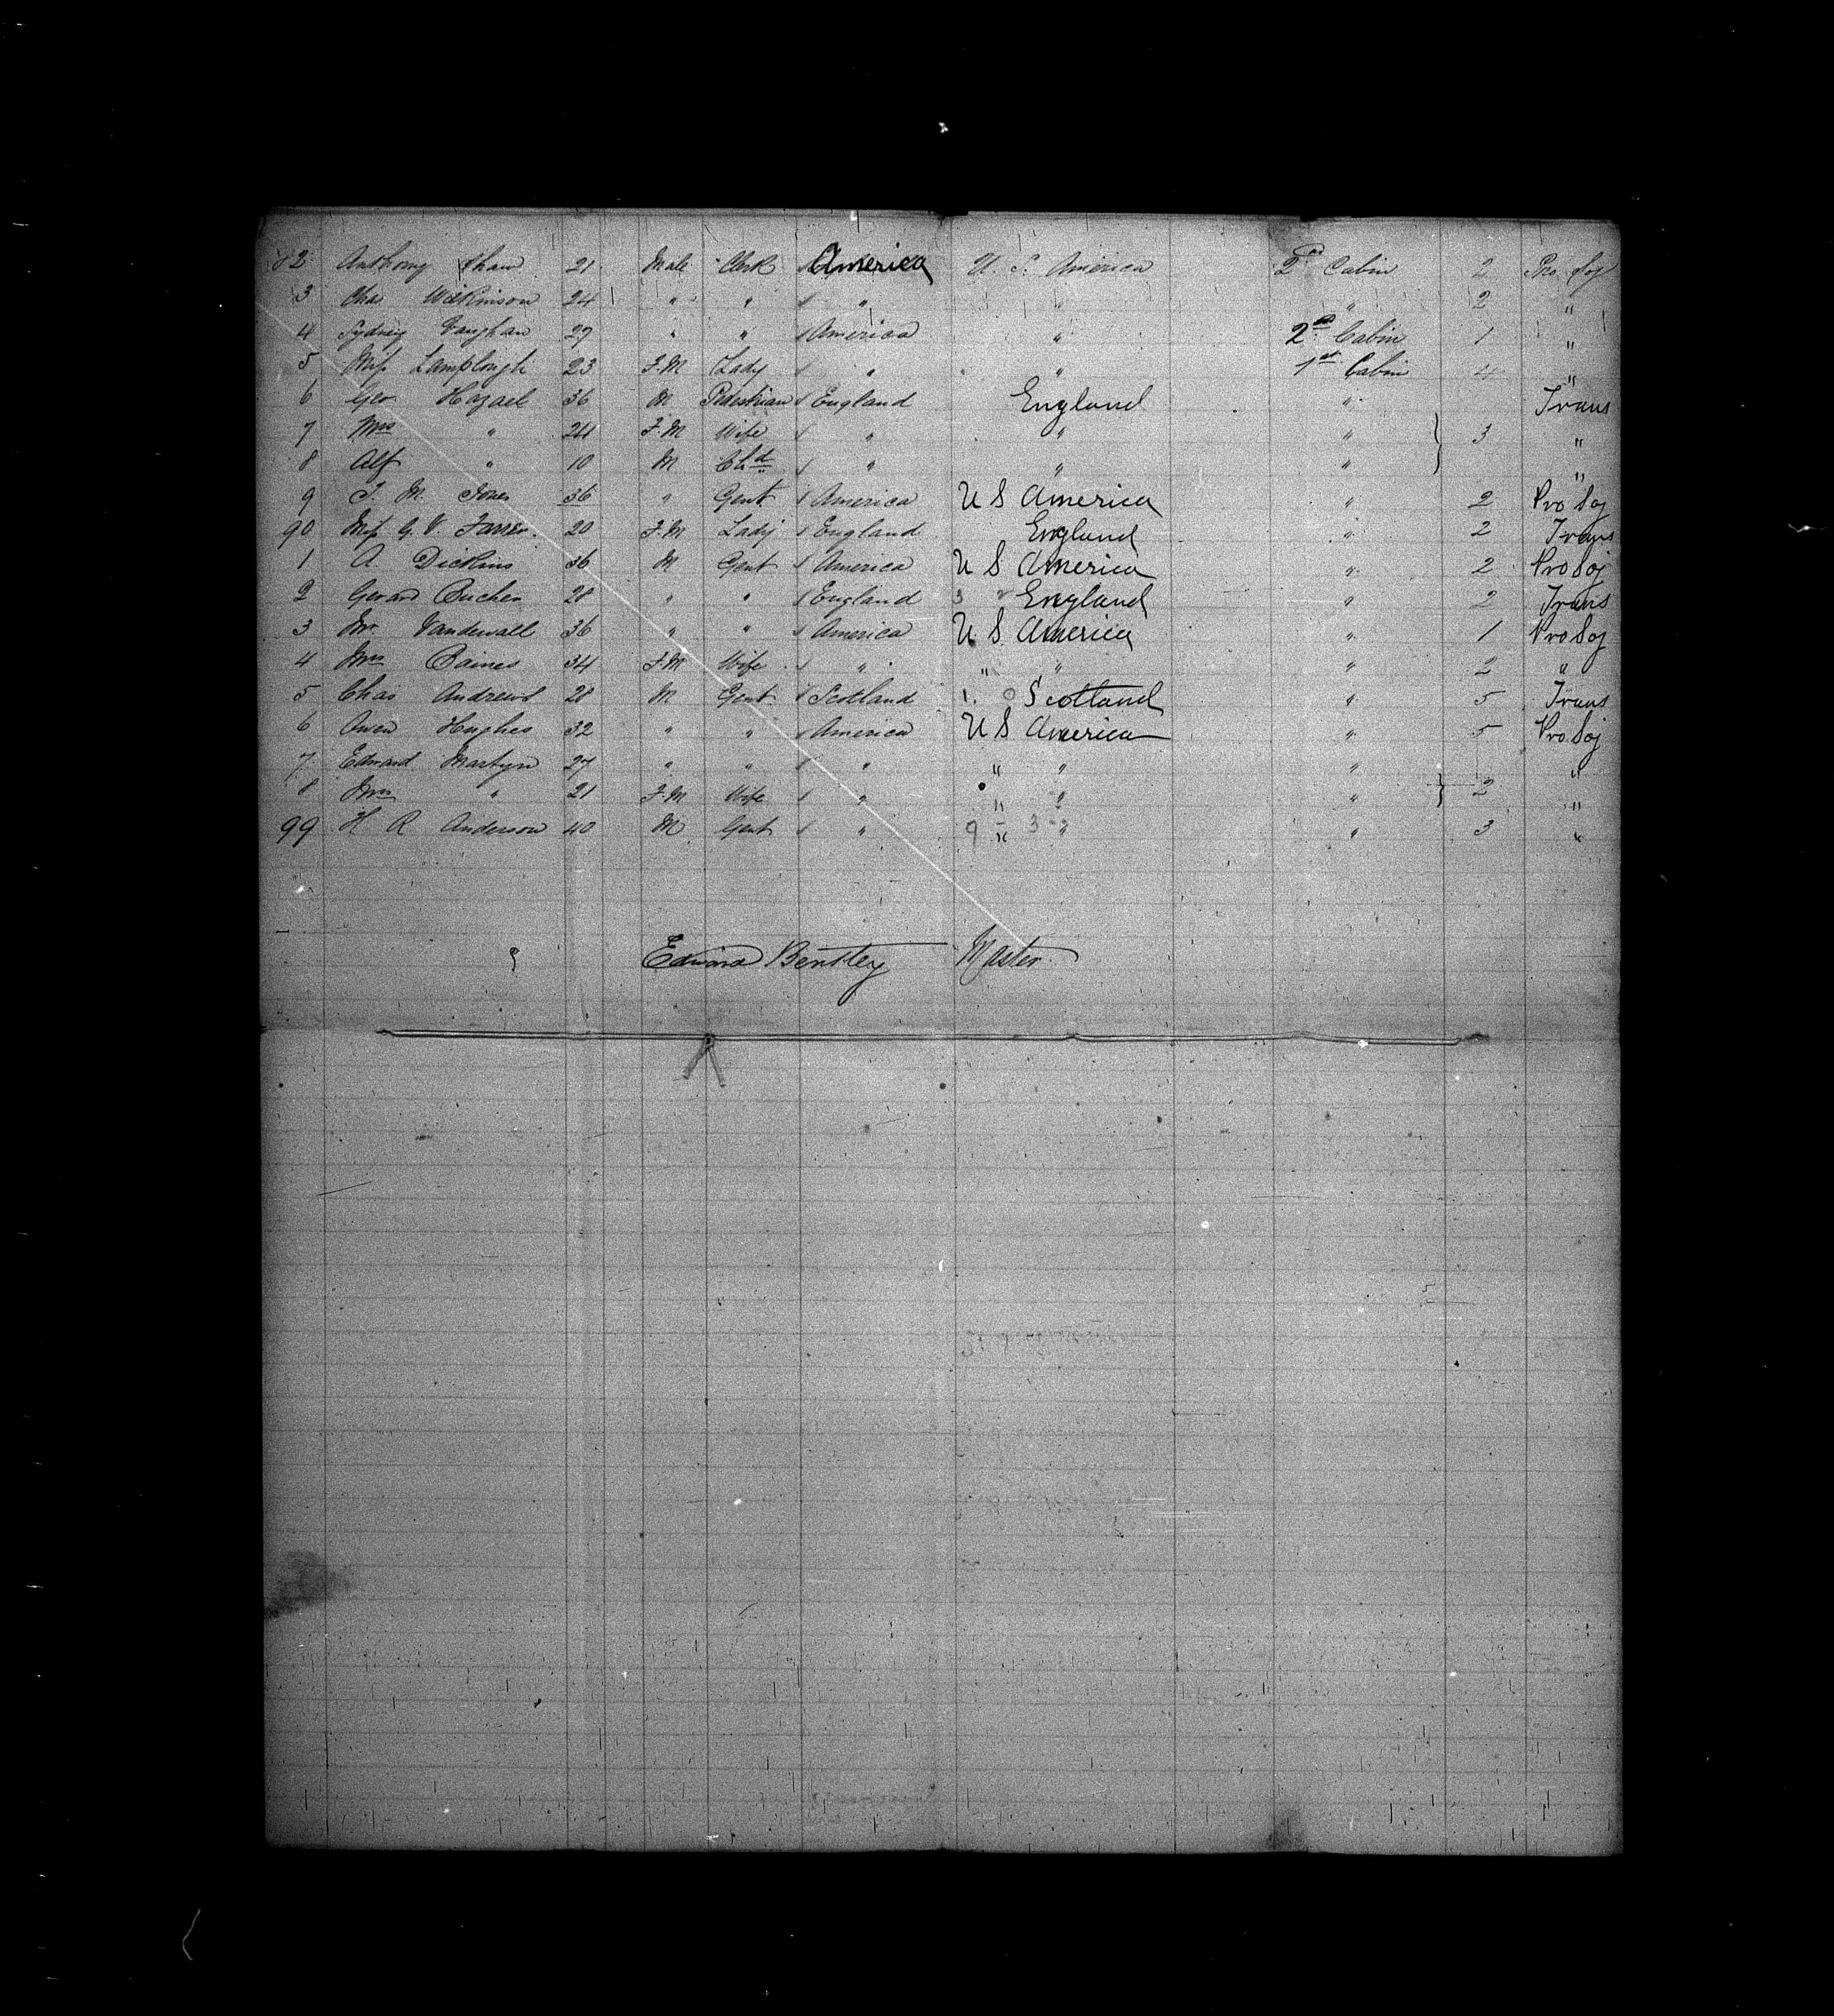 82 Anthony Shaw 21 Male Clerk America U. S. America 2nd Cabin 2 Pro Soj
3 Chas Wilkinson 24 " " " " " 2 "
4 Sydney Vaughan 27 " " America " 2nd Cabin 1 "
5 Miss Lamplough 23 F.M Lady " " 1st Cabin 4 "
6 Geo Hazael 36 M Pedestrian England England " Trans
7 Mrs " 24 F.M Wife " " " 3 "
8 Alf " 10 M Chd " " " "
9 T. M. Jones 36 " Gent America U S America " 2 Pro Soj
90 Miss G. V. 20 F.M Lady England England " 2 Trans
1 A. Dickins 36 M Gent America U S America " 2 Pro Soj
2 Gerard 28 " " England England " 2 Trans
3 Mr Vandewall 36 " " America U S America " 1 Pro Soj
4 Mrs Baines 34 F.M Wife " " " " 2 "
5 Chas Andrews 28 M Gent Scotland Scotland " 5 Trans
6 Owen Hughes 32 " " America U S America " 5 Pro Soj
7 Edward Martyn 27 " " " " " " "
8 Mrs " 21 F.M Wife " " " " 2 "
99 H R Anderson 40 M Gent " " " " 3 "
Edward Bentley Master